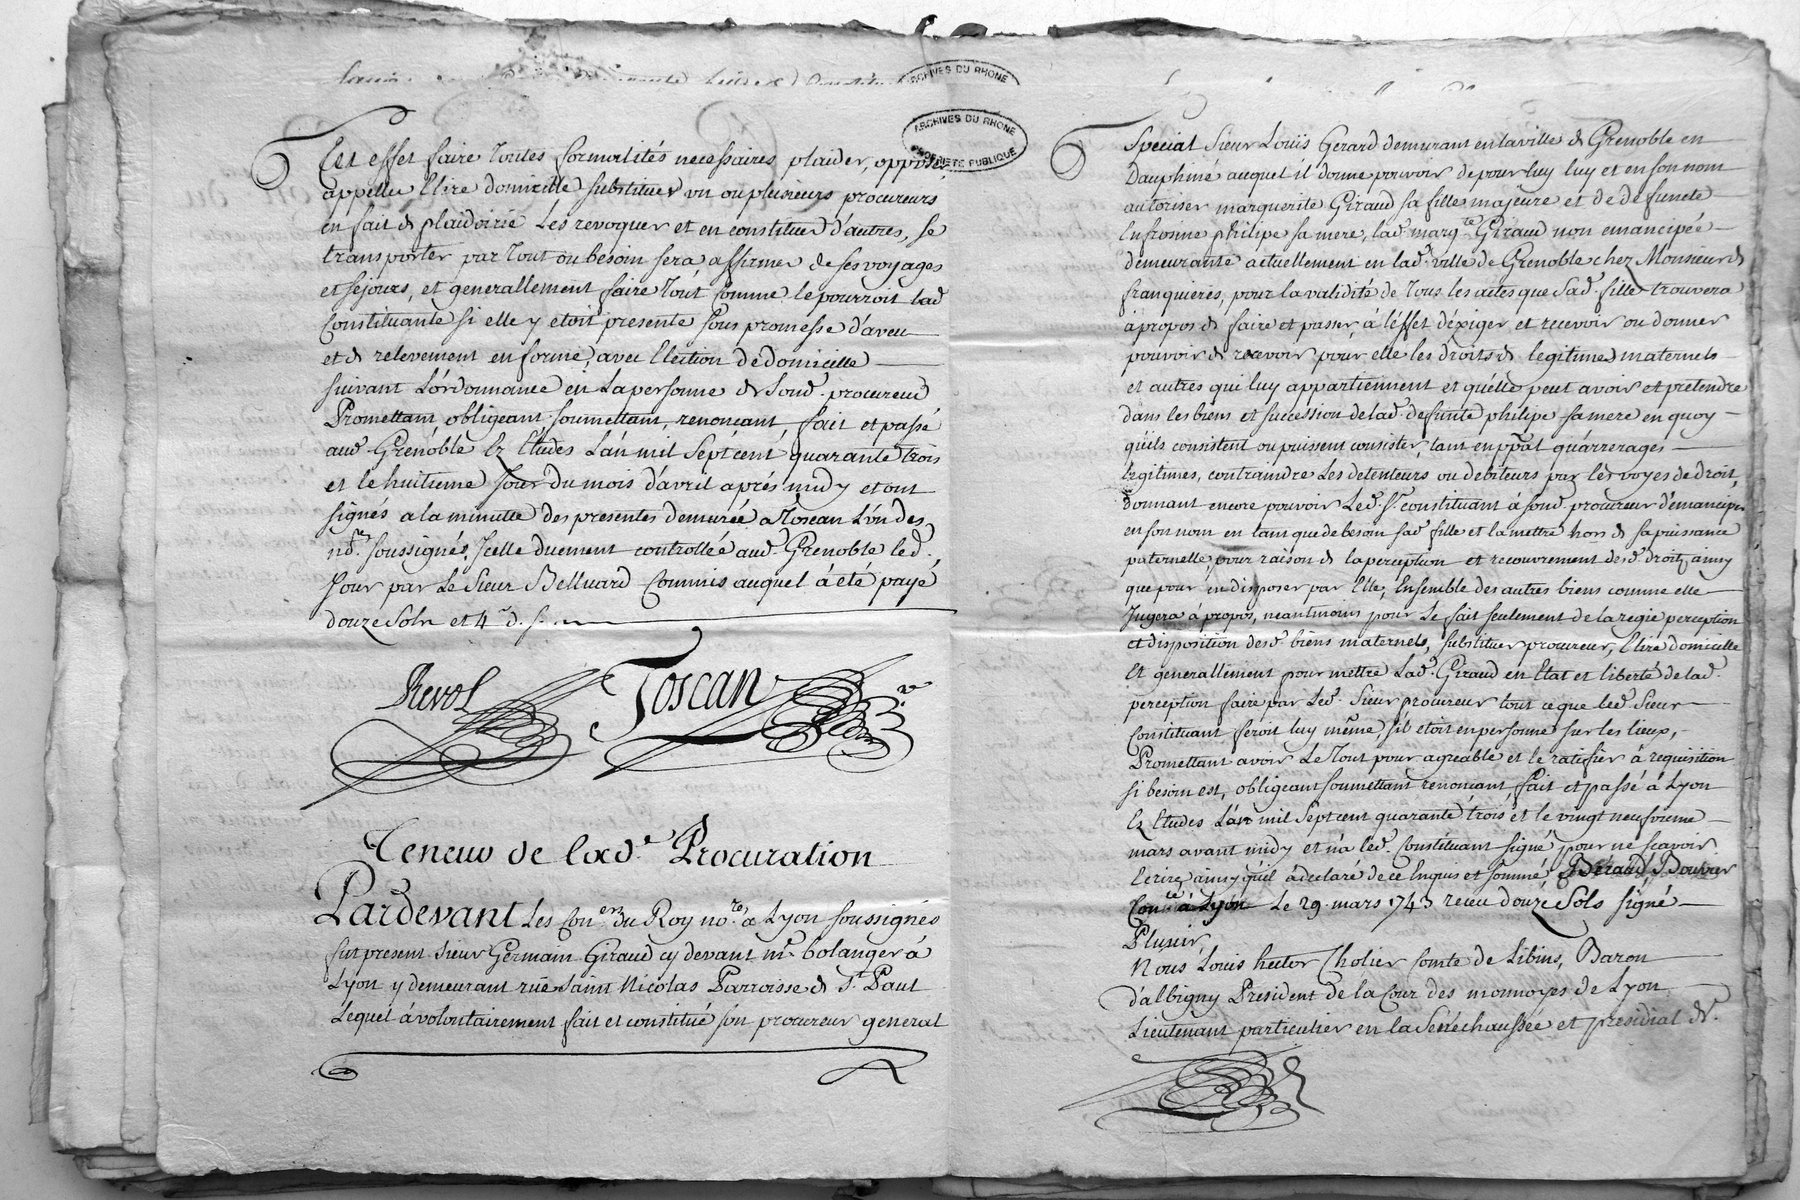 ARCHIVES DU RHONE
ARCHIVES DU RHONE
PROPRIETE PUBLIQUE
Cet effet faire toutes formalités necessaires, plaider, opposer
appeller Elire domicille substituer un ou plusieurs procureurs
en fait de plaidoirie Les revoquer et en constituer d'autres, se
transporter par tout ou besoin sera affirmer de ses voyages
et séjours, et generallement faire tout comme le pourroit lad.
Constituante si elle y etoit presente sous promesse d'aveu
et de relevement en forme, avec Election de domicille
suivant L'ordonnance en La personne de Sond. procureur
Promettant, obligeant, soumettant, renonçant, fait et passé
aud. Grenoble Ez Etudes L'an mil Sept cent quarante trois
et le huitieme Jour du mois d'avril après midy et ont
signés a la minutte des presentes demurée a Toscan L'un des
nores. soussignés, Icelle duement controllée aud. Grenoble led.
Jour par Le Sieur Belluard Commis auquel à été payé
douze Sols et 4 d. s.
Revol Toscan
Teneur de lad.e Procuration
Pardevant Les Con.ers du Roy no.res a Lyon soussignés
fut present Sieur Germain Giraud cy devant m.e bolanger à
Lyon y demeurant rüe Saint Nicolas Parroisse de S.t Paul
Lequel à volontairement fait et constitué son procureur general
Special Sieur Louis Gerard demurant en la ville de Grenoble en
Dauphiné auquel il donne pouvoir de pour luy luy et en son nom
autoriser marguerite Giraud sa fille majeure et de defuncte
Enfronne philipe sa mere, lad. marg.te Giraud non emancipée
demeurante actuellement en lad. ville de Grenoble chez Monsieur de
franquieres, pour la validité de tous les actes que Sad. fille trouvera
à propos de faire et passer à l'effet d'exiger et recevoir ou donner
pouvoir de recevoir pour elle les droits de legitimes maternels
et autres qui luy appartiennent et qu'elle peut avoir et pretendre
dans les biens et succession de lad. defunte philipe sa mere en quoy
qu'ils consistent ou puissent consister, tant en pp.al qu'arrerages
Legitimes, contraindre Les detenteurs ou debiteurs par les voyes de droit,
donnant encore pouvoir Led. S.r constituant à sond. procureur d'émanciper
en son nom en tant que de besoin sad. fille et la mettre hors de sa puissance
paternelle, pour raison de la perception et recouvrement desd. droits, ainsy
que pour en disposer par Elle, Ensemble des autres biens comme elle
Jugera à propos, neantmoins pour Le fait seulement de la regie perception
et disposition desd. biens maternels, substituer procureur, Elire domicille
Et generallement pour mettre Lad. Giraud en Etat et liberté de lad.
perception faire par Led. Sieur procureur tout ce que led. Sieur
Constituant feroit luy même, s'il etoit en personne sur les lieux,
Promettant avoir Le tout pour agreable et le ratifier à requisition
si besoin est, obligeant soumettant renonçant, fait et passé à Lyon
Ez Etudes L'an mil Sept cent quarante trois et le vingt neufvieme
mars avant midy et n'a led. Constituant signé pour ne sçavoir
Ecrire, ainsy qu'il à declaré de ce Enquis et sommé Beraud, Bouvier
Con.té à Lyon Le 29 mars 1743 receu douze Sols signé
Nous Louis hector Cholier Comte de Cibins, Baron
d'albigny President de la Cour des monnoyes de Lyon
Lieutenant particulier en la Senéchaussée et presidial de